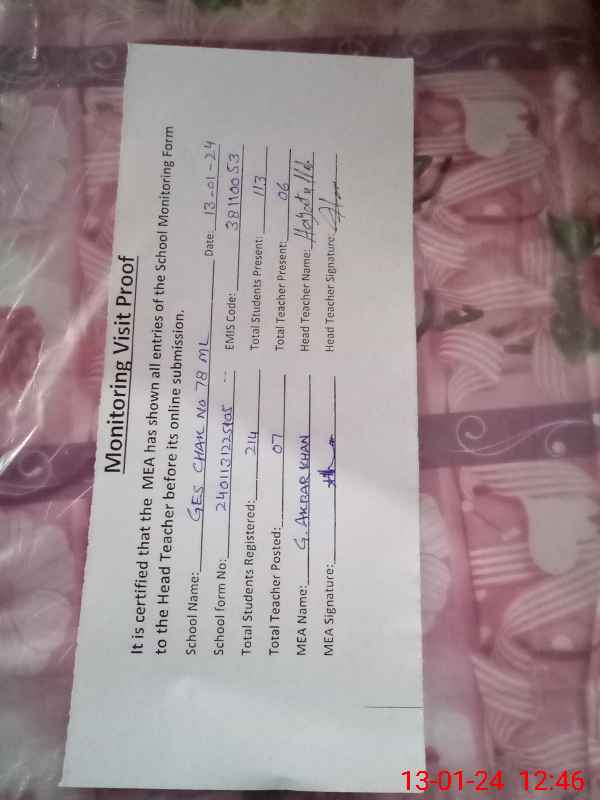 Monitoring Visit Proof
It is certified that the MEA has shown all entries of the School Monitoring Form
to the Head Teacher before its online submission.
School Name: GES CHAK NO 78 ML Date: 13-01-24
School form No: 2401131225905 -- EMIS Code: 38110053
Total Students Registered: 214 Total Students Present: 113
Total Teacher Posted: 07 Total Teacher Present: 06
MEA Name: G. AKBAR KHAN Head Teacher Name:
MEA Signature: Head Teacher Signature:
13-01-24 12:46